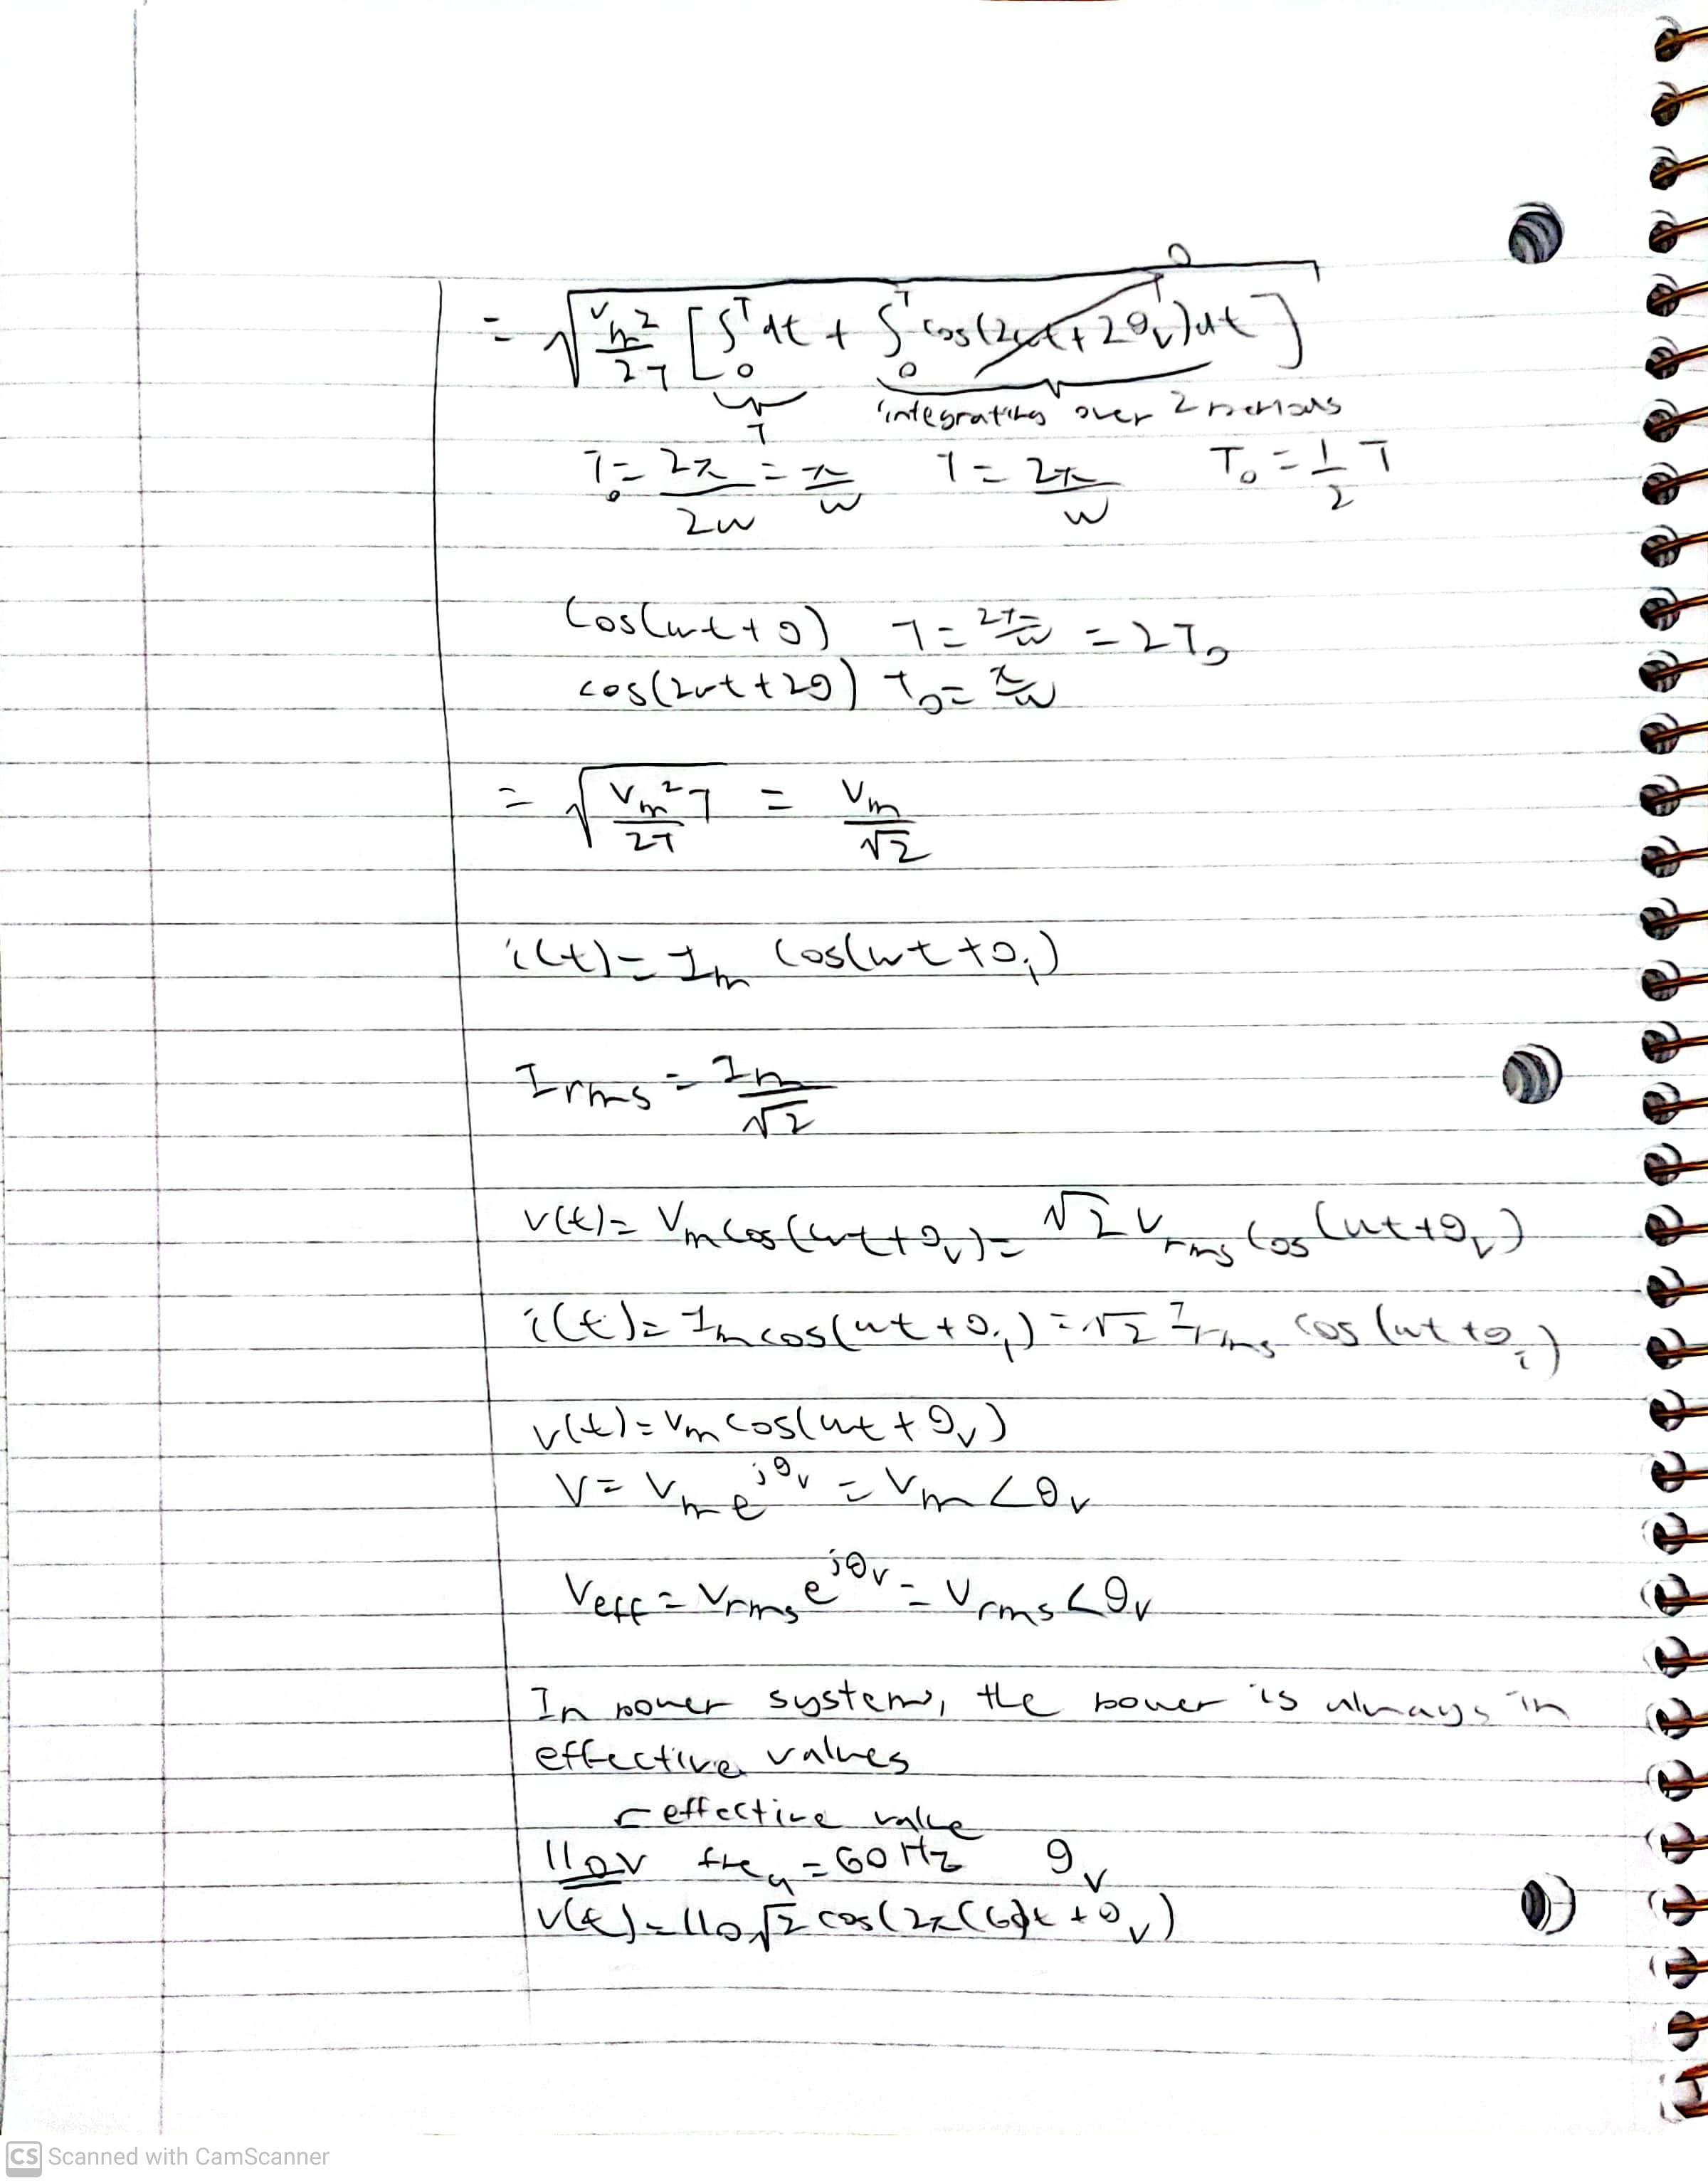 = √(Vm²/2T [∫₀ᵀ dt + ∫₀ᵀ cos(2ωt + 2θv)dt]) 0
T integrating over 2 periods
T₀ = 2π/2ω = π/ω T = 2π/ω T₀ = 1/2 T
cos(ωt + θ) T = 2π/ω = 2T₀
cos(2ωt + 2θ) T₀ = π/ω
= √(Vm² T/2T) = Vm/√2
i(t) = Im cos(ωt + θi)
Irms = Im/√2
v(t) = Vm cos(ωt + θv) = √2 Vrms cos(ωt + θv)
i(t) = Im cos(ωt + θi) = √2 Irms cos(ωt + θi)
v(t) = Vm cos(ωt + θv)
V = Vm e^jθv = Vm ∠θv
Veff = Vrms e^jθv = Vrms ∠θv
In power systems, the power is always in
effective values
effective value
110V freq = 60 Hz θv
v(t) = 110√2 cos(2π(60)t + θv)
CS Scanned with CamScanner